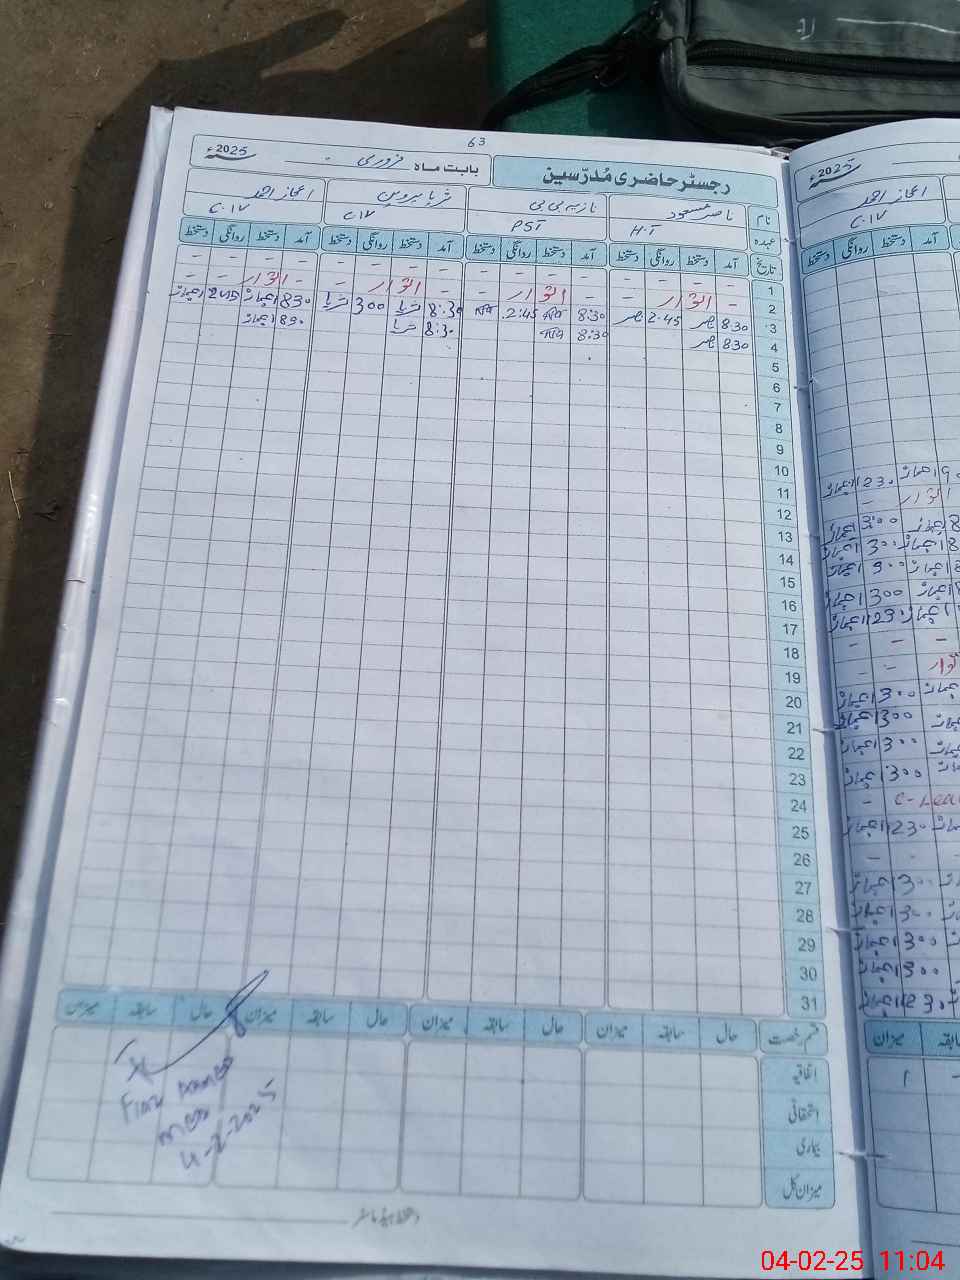 63
رجسٹر حاضری مُدرّسین بابت ماہ فروری 2025ء
نام ناصر مسعود نازیہ بی بی ثریا پروین اعجاز احمد
عہدہ H.T PST C.IV C.IV
تاریخ آمد دستخط روانگی دستخط آمد دستخط روانگی دستخط آمد دستخط روانگی دستخط آمد دستخط روانگی دستخط
1 - - - - - - - - - - - - - - - -
2 - اتوار - - اتوار - - اتوار - - اتوار - -
3 8:30 ناصر 2:45 ناصر 8:30 2:45 8:30 ثریا 300 ثریا 830 اعجاز 245 اعجاز
4 830 ناصر 8:30 8:30 ثریا 830 اعجاز
5
6
7
8
9
10
11
12
13
14
15
16
17
18
19
20
21
22
23
24
25
26
27
28
29
30
31
قسم رخصت حال سابقہ میزان حال سابقہ میزان حال سابقہ میزان حال سابقہ میزان
اتفاقیہ
استحقاقی
بیماری
میزان کل
4-2-2025
دستخط ہیڈ ماسٹر
2025ء
اعجاز احمد
C.IV
آمد دستخط روانگی دستخط
اعجاز 230 اعجاز
اتوار -
اعجاز 3:00 اعجاز
اعجاز 300 اعجاز
اعجاز 300 اعجاز
اعجاز 300 اعجاز
اعجاز 123 اعجاز
- -
اتوار - -
اعجاز 300 اعجاز
اعجاز 300 اعجاز
اعجاز 300 اعجاز
اعجاز 300 اعجاز
- C-Lea
اعجاز 230 اعجاز
- - -
اعجاز 300
اعجاز 300
اعجاز 300
اعجاز 300
اعجاز 1230
سابقہ میزان
1
04-02-25 11:04